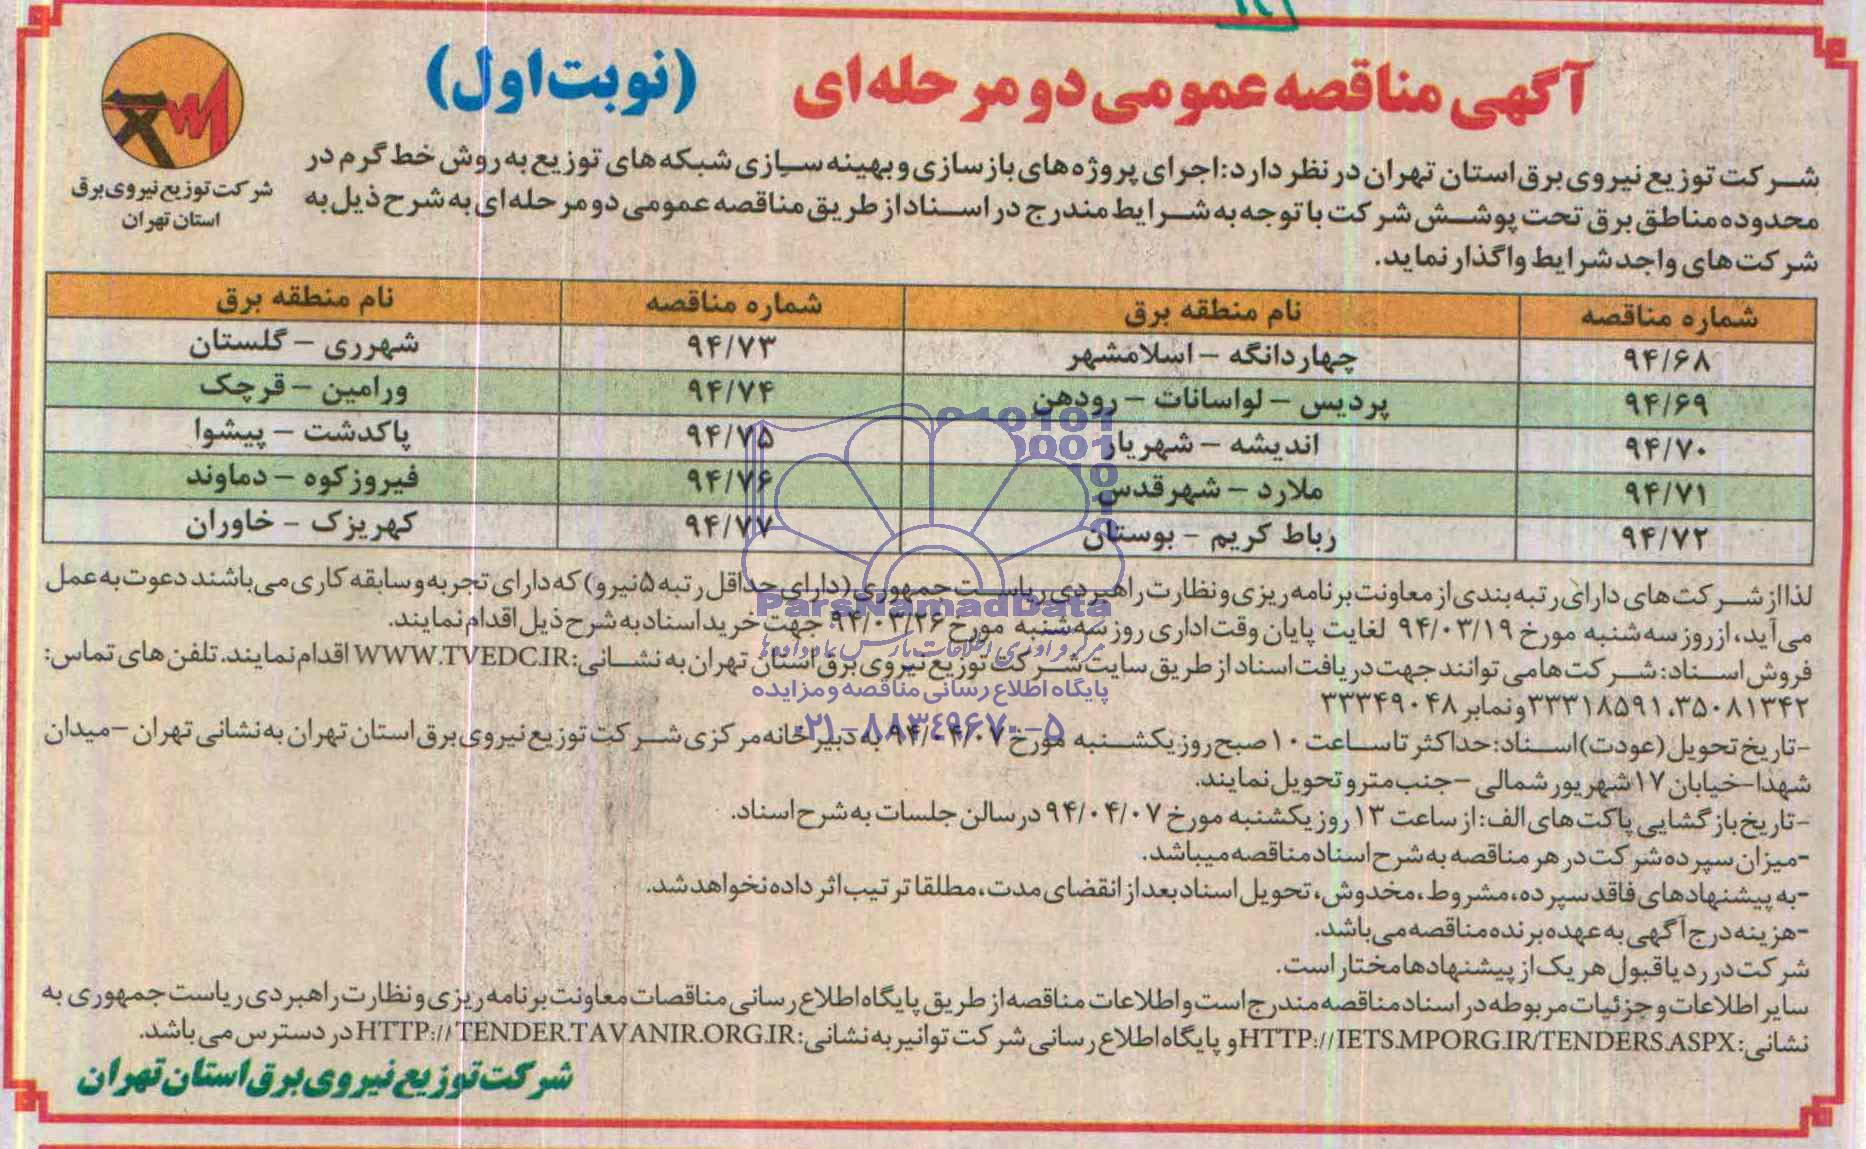 آگهی مناقصه عمومی دو مرحله‌ای (نوبت اول)
شرکت توزیع نیروی برق
استان تهران
شرکت توزیع نیروی برق استان تهران در نظر دارد: اجرای پروژه‌های بازسازی و بهینه سازی شبکه‌های توزیع به روش خط گرم در
محدوده مناطق برق تحت پوشش شرکت با توجه به شرایط مندرج در اسناد از طریق مناقصه عمومی دو مرحله‌ای به شرح ذیل به
شرکت‌های واجد شرایط واگذار نماید.
شماره مناقصه نام منطقه برق شماره مناقصه نام منطقه برق
۹۴/۶۸ چهاردانگه – اسلامشهر ۹۴/۷۳ شهرری – گلستان
۹۴/۶۹ پردیس – لواسانات – رودهن ۹۴/۷۴ ورامین – قرچک
۹۴/۷۰ اندیشه – شهریار ۹۴/۷۵ پاکدشت – پیشوا
۹۴/۷۱ ملارد – شهرقدس ۹۴/۷۶ فیروزکوه – دماوند
۹۴/۷۲ رباط کریم – بوستان ۹۴/۷۷ کهریزک – خاوران
لذا از شرکت‌های دارای رتبه بندی از معاونت برنامه ریزی و نظارت راهبردی ریاست جمهوری (دارای حداقل رتبه ۵ نیرو) که دارای تجربه و سابقه کاری می‌باشند دعوت به عمل
می‌آید، از روز سه شنبه مورخ ۹۴/۰۳/۱۹ لغایت پایان وقت اداری روز سه شنبه مورخ ۹۴/۰۳/۲۶ جهت خرید اسناد به شرح ذیل اقدام نمایند.
فروش اسناد: شرکت‌ها می توانند جهت دریافت اسناد از طریق سایت شرکت توزیع نیروی برق استان تهران به نشانی: WWW.TVEDC.IR اقدام نمایند. تلفن های تماس:
۳۳۳۱۸۵۹۱، ۳۵۰۸۱۳۴۲ و نمابر ۳۳۳۴۹۰۴۸
-تاریخ تحویل (عودت) اسناد: حداکثر تا ساعت ۱۰ صبح روز یکشنبه مورخ ۹۴/۰۴/۰۷ به دبیرخانه مرکزی شرکت توزیع نیروی برق استان تهران به نشانی تهران –میدان
شهدا–خیابان ۱۷ شهریور شمالی –جنب مترو تحویل نمایند.
-تاریخ بازگشایی پاکت‌های الف: از ساعت ۱۳ روز یکشنبه مورخ ۹۴/۰۴/۰۷ در سالن جلسات به شرح اسناد.
-میزان سپرده شرکت در هر مناقصه به شرح اسناد مناقصه میباشد.
-به پیشنهادهای فاقد سپرده، مشروط، مخدوش، تحویل اسناد بعد از انقضای مدت، مطلقا ترتیب اثر داده نخواهد شد.
-هزینه درج آگهی به عهده برنده مناقصه می‌باشد.
شرکت در رد یا قبول هر یک از پیشنهادها مختار است.
سایر اطلاعات و جزئیات مربوطه در اسناد مناقصه مندرج است و اطلاعات مناقصه از طریق پایگاه اطلاع رسانی مناقصات معاونت برنامه ریزی و نظارت راهبردی ریاست جمهوری به
نشانی: HTTP://IETS.MPORG.IR/TENDERS.ASPX و پایگاه اطلاع رسانی شرکت توانیر به نشانی: HTTP://TENDER.TAVANIR.ORG.IR در دسترس می باشد.
شرکت توزیع نیروی برق استان تهران
ParsNamadData
پایگاه اطلاع رسانی مناقصه و مزایده
۰۲۱-۸۸۳۴۹۶۷۰-۵